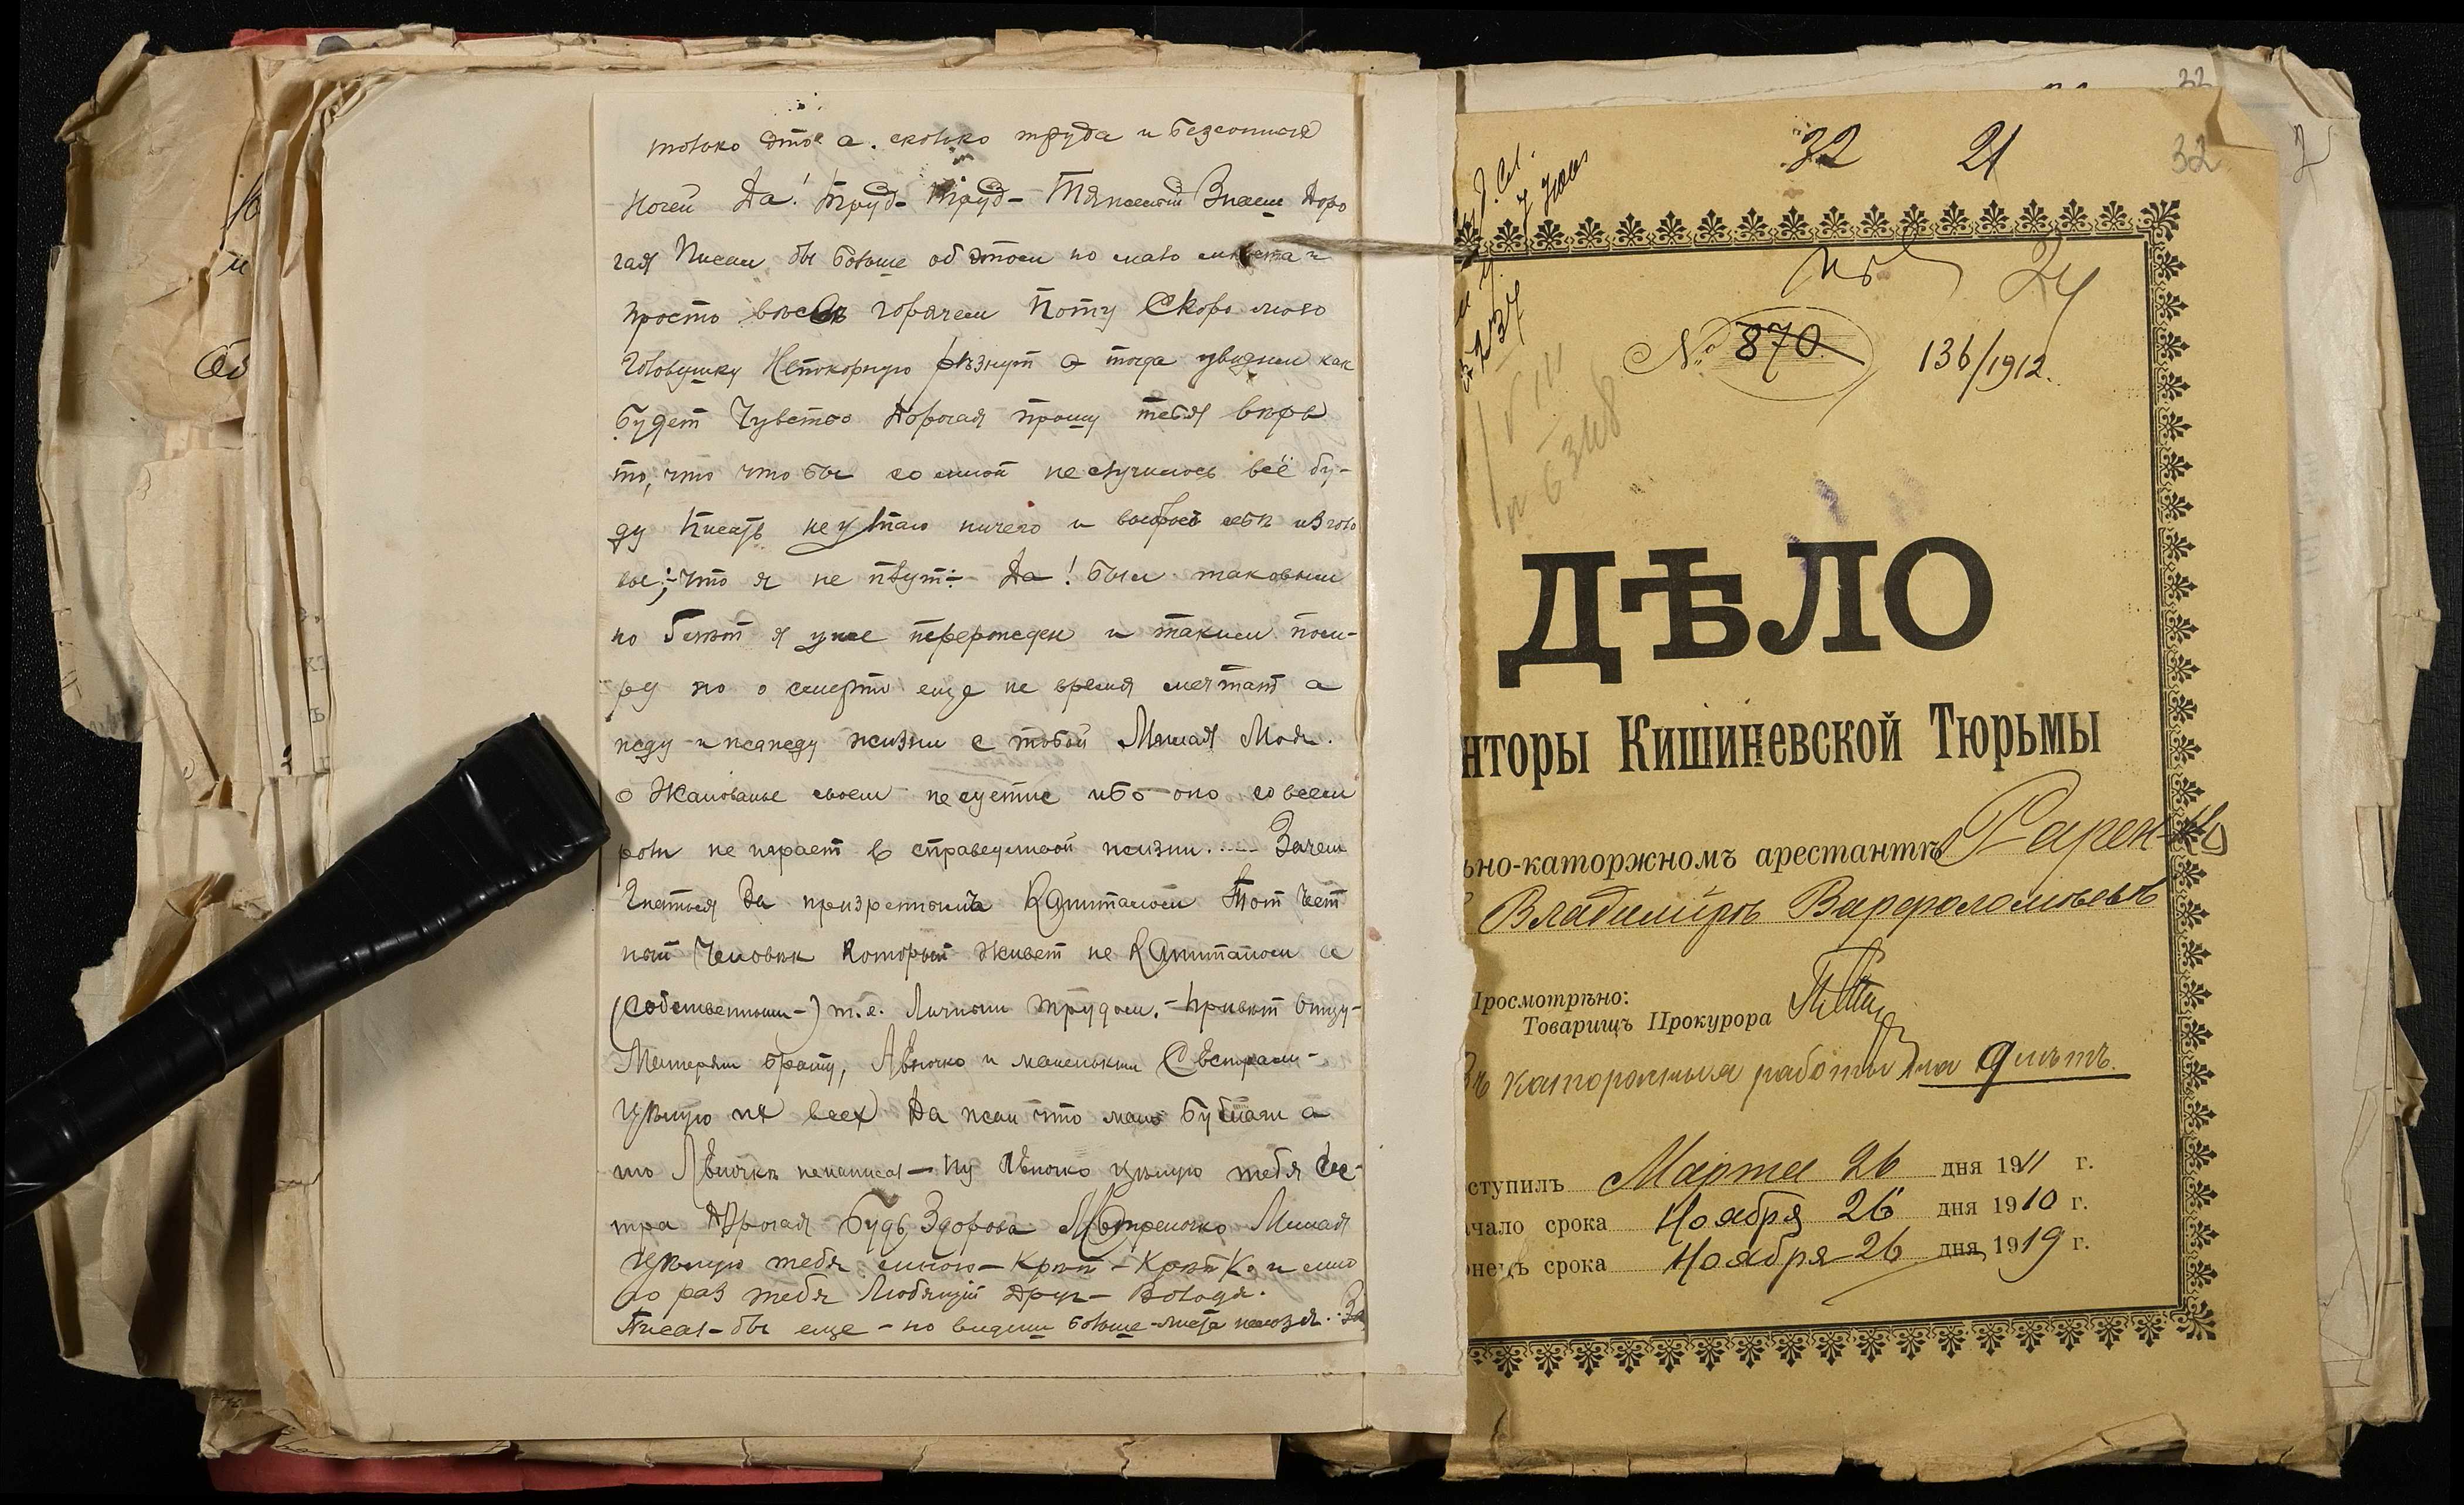 только это а. сколько труда и безсонных
Ночей Да! Труд- Труд- Тяжелый Знаеш Доро
гая Писал бы больше об этом но мало места и
просто весь в горячем Поту Скоро мою
Головушку Непокорную рѣзнут а тогда увидим как
будет Чувство Дорогая прошу тебя вѣрь
то, что что бы со мной не случилось всё бу-
ду писать не утаю ничего и выбрось себѣ из голо
вы;- что я не плут:- Да! был таковым
но Бетой я уже перерожден и таким пом-
ру но о смерти еще не время мечтат а
жду и жажду жизни с тобой Милая Моя.
о Жалованье своем не сустис ибо оно совсем
роли не играет в справедливой жизни.... Зачем
Гнаться За презренным Капиталом Тот Чест
ный Человѣк Который Живет не Капиталом а
(Собственным-) т.е. Личным трудом.- Привѣт Отцу-
Матери брату, Лёничко и маленьким Сёстрам-
Цѣлую их всех Да жал что мало бумаги а
то Лёничкѣ ненаписал- Ну Лёничко цѣлую тебя Сес-
тра Дорогая Будь Здорова Мотреночко Милая
Цѣлую тебя много- Крѣп- Крѣпко и мно
го раз тебя Любящий Друг- Володя.
Писал-бы еще - но видиш больше листа нельзя. За
32 21
32
24
№ 870
136/1912.
6348
ДѢЛО
нторы Кишиневской Тюрьмы
ьно-каторжномъ арестантѣ
Владимірѣ Варфоломѣевѣ
Просмотрѣно:
Товарищъ Прокурора
Въ каторжныя работы на 9 лѣтъ.
ступилъ Марта 26 дня 1911 г.
чало срока Ноября 26 дня 1910 г.
нецъ срока Ноября 26 дня 1919 г.